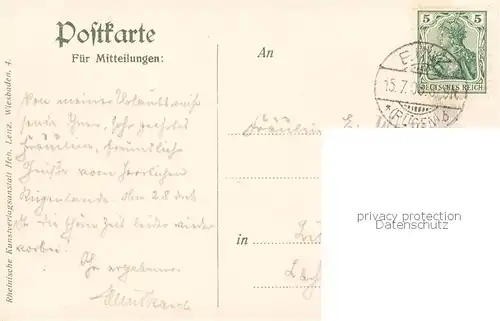 Postkarte
Für Mitteilungen:
An
5
DEUTSCHES REICH
15.7.
(RÜGEN) b
Von meiner Urlaubsreise
sende Ihnen, sehr geehrtes
Fräulein, freundliche
Grüße vom herrlichen
Rügenlande. Am 28
ist die schöne Zeit leider wieder
vorbei.
Ihr ergebener
Fräulein
privacy protection
Datenschutz
in
Rheinische Kunstverlagsanstalt Hch. Lenz. Wiesbaden. 4.